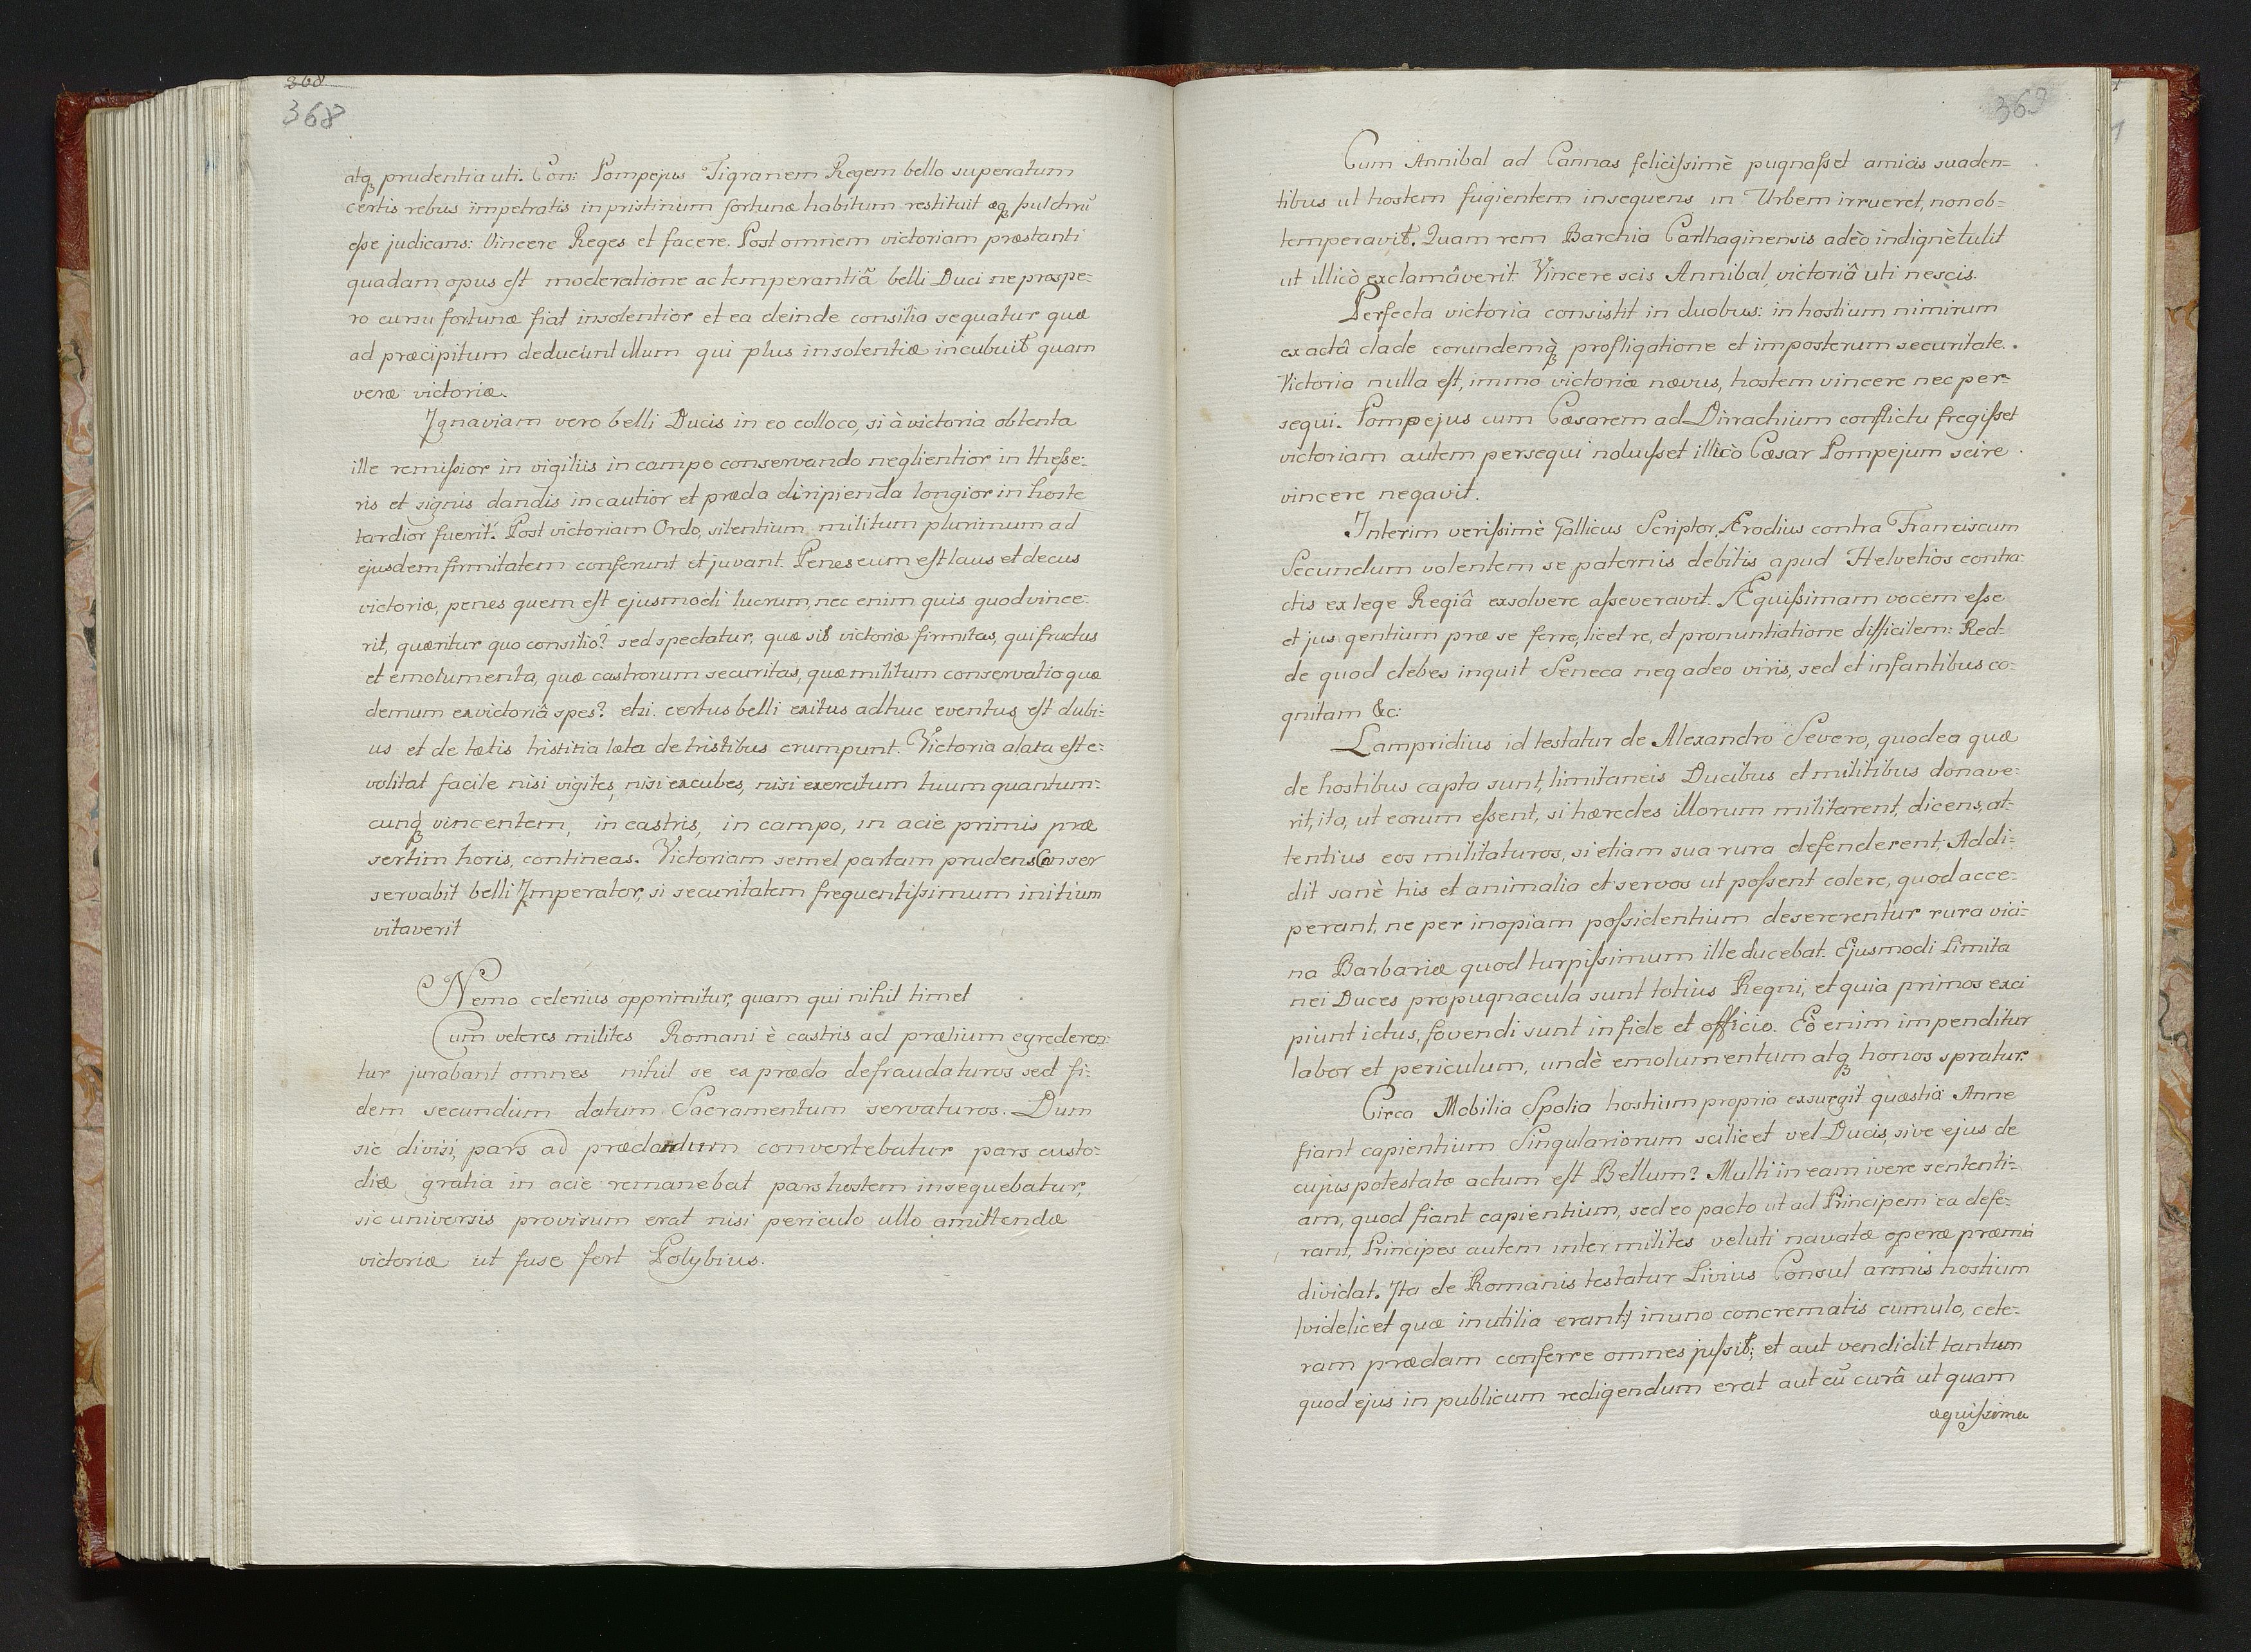 368
368
atq prudentia uti. Con: Pompejus Tigranem Regem bello superatum
certis rebus impetratis in pristinum fortunæ habitum restituit æq pulchrũ
eſse judicans: Vincere Reges et facere. Post omnem victoriam præstanti
quadam opus est moderatione ac temperantiâ belli Duci ne prospe-
ro cursu fortunæ fiat insolentior et ea deinde consilia sequatur quæ
ad præcipitum deducunt illum qui plus insolentiæ incubuit quam
veræ victoriæ.
Ignaviam vero belli Ducis in eo colloco, si à victoria obtenta
ille remiſsior in vigiliis in campo conservando neglientior in theſse-
ris et signis dandis incautior et præda diripienda longior in hoste
tardior fuerit. Post victoriam Ordo, silentium militum plurimum ad
ejusdem firmitatem conferunt et juvant. Penes eum est laus et decus
victoriæ, penes quem est ejusmodi lucrum, nec enim quis quod vince-
rit, quæritur quo consilio? sed spectatur, quæ sit victoriæ firmitas, qui fructus
et emolumenta, quæ castrorum securitas, quæ militum conservatio quæ
demum ex victoriâ spes? etsi certus belli exitus adhuc eventus est dubi-
us et de lætis tristitia læta de tristibus erumpunt. Victoria alata est e-
volitat facile nisi vigiles, nisi excubes, nisi exercitum tuum quantum-
cunq vincentem, in castris, in campo, in acie primis præ
sertim horis, contineas. Victoriam semel partam prudens Conser
servabit belli Imperator, si securitatem frequentiſsimum initium
vitaverit
Nemo celerius opprimitur, quam qui nihil timet
Cum veteres milites Romani è castris ad prælium egrederen-
tur jurabant omnes nihil se ex præda defraudaturos sed fi-
dem secundum datum Sacramentum servaturos. Dum
sic divisi, pars ad prædandum convertebatur pars custo-
diæ gratia in acie remanebat pars hostem insequebatur,
sic universis provisum erat nisi periculo ullo amittendæ
victoriæ ut fuse fert Polybius.
369
Cum Annibal ad Cannas feliciſsimè pugnaſset amicis suaden-
tibus ut hostem fugientem insequens in Urbem irrueret, non ob-
temperavit. Quam rem Barchia Carthaginensis adèo indignè tulit
ut illicò exclamâverit. Vincere scis Annibal, victoriâ uti nescis.
Perfecta victoria consistit in duobus: in hostium nimirum
exactâ clade eorundemq̀ profligatione et imposterum securitate.
Victoria nulla est, immo victoriæ nævus, hostem vincere nec per-
sequi. Pompejus cum Cæsarem ad Dirrachium conflictu fregiſset
victoriam autem persequi noluiſset illicò Cæsar Pompejum scire
vincere negavit.
Interim veriſsimè Gallicus Scriptor Ærodius contra Franciscum
Secundum volentem se paternis debitis apud Helvetios contra-
ctis ex lege Regiâ exsolvere aſseveravit. Æquiſsimam vocem eſse
et jus gentium præ se ferre, licet re, et pronuntiatione difficilem: Red-
de quod debes inquit Seneca neq adeo viris, sed et infantibus co-
gnitam &c:
Lampridius id testatur de Alexandro Severo, quod ea quæ
de hostibus capta sunt, limitaneis Ducibus et militibus donave-
rit, ita, ut eorum eſsent, si hæredes illorum militarent, dicens, at-
tentius eos militaturos, si etiam sua rura defenderent; Addi-
dit sanè his et animalia et servos ut poſsent colere, quod acce-
perant, ne per inopiam poſsidentium desererentur rura vici-
na Barbariæ quod turpiſsimum ille ducebat. Ejusmodi Limita
nei Duces propugnacula sunt totius Regni, et quia primos exci
piunt ictus, fovendi sunt in fide et officio. Eò enim impenditur
labor et periculum, undè emolumentum atq honos spratur.
Circa Mobilia Spolia hostium propria exsurgit quæstio Anne
fiant capientium Singulariorum scilicet vel Ducis, sive ejus de
cujus potestate actum est Bellum? Multi in eam ivere sententi-
am, quod fiant capientium, sed eo pacto ut ad Principem ea defe-
rant, Principes autem inter milites veluti navatæ operæ præmia
dividat. Ita de Romanis testatur Livius Consul armis hostium
/videlicet quæ inutilia erant/ in uno concrematis cumulo, cete-
ram prædam conferre omnes juſsit; et aut vendidit tantum
quod ejus in publicum redigendum erat aut cũ curâ ut quam
æquiſsima